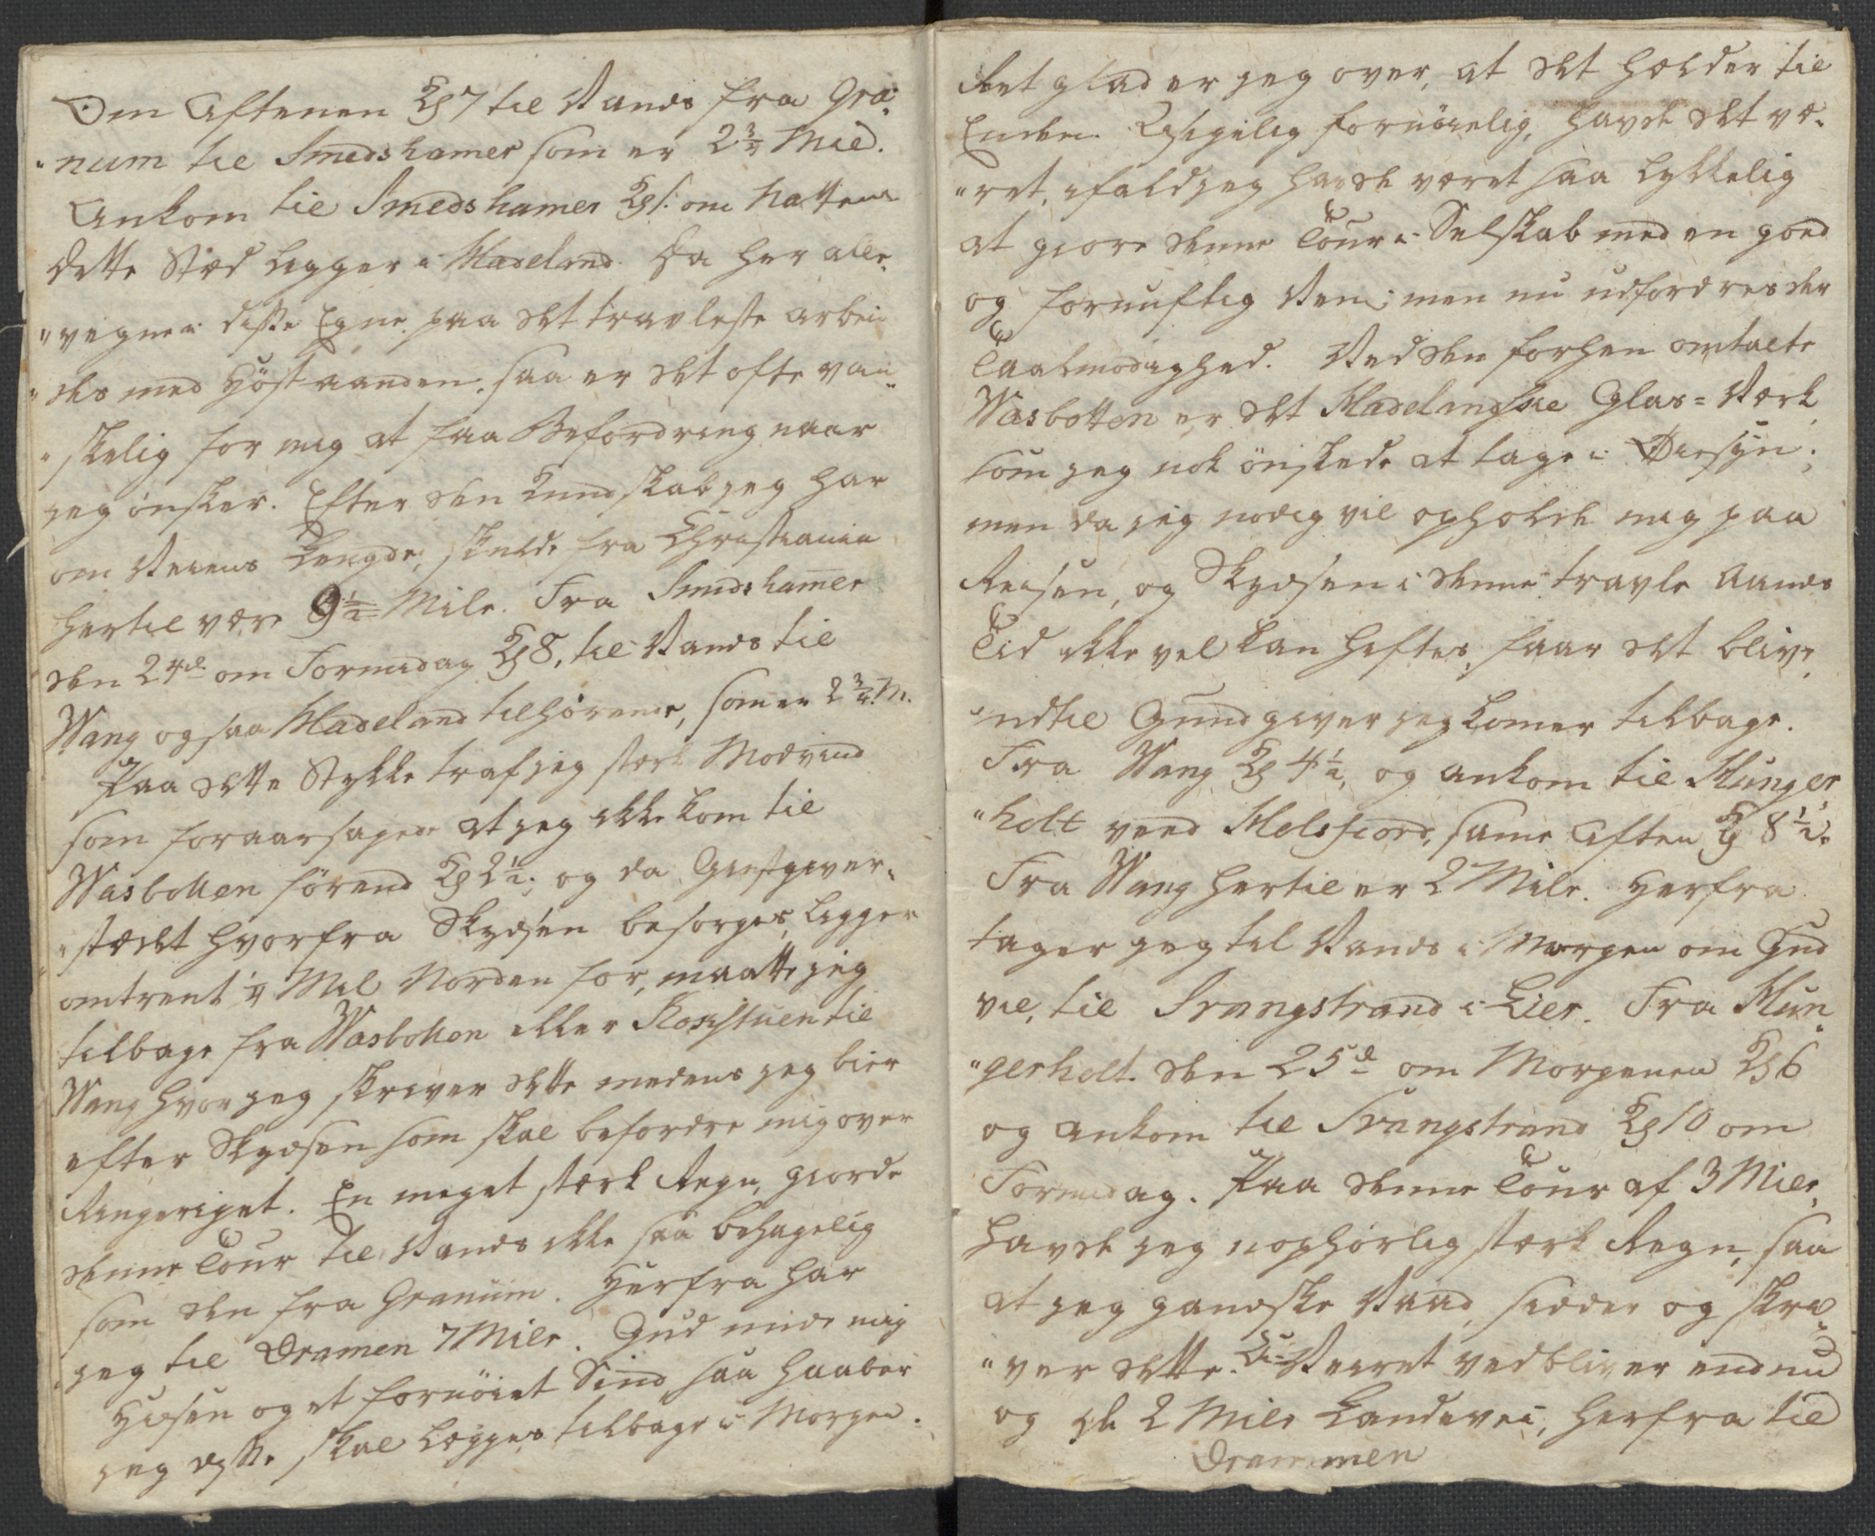 Om Aftenen Kl 7 til Vands fra Gra„
„num til Smedshamer som er 2¾ Miil.
Ankom til Smedshamer Kl 1 om Natten
dette Stæd ligger i Hadeland. Da her alle„
„vegne i disse Egne paa det travleste arbei„
„des med Höst aanden, saa er det ofte van„
„skelig for mig at faa Befordring naar
jeg ønsker. Efter den Kundskab jeg har
om Veiens Længde, skulde fra Christiania
hertil være 9½ Mile. Fra Smidshamer
den 24de om Formidag Kl 8, til Vands til
Wang og saa Hadeland tilhørende, som er 2¾ M.
Paa dette Stykke traf jeg stærk Modvind
som foraarsagede at jeg ikke kom til
Wasbotten førend Kl 2½, og da Giestgiver„
„stædet hvorfra Skydsen besorges, ligger
omtrent ¼ Mil Norden for, maatte jeg
tilbage fra Wasbotten eller til
Wang hvor jeg skriver dette medens jeg bier
efter Skydsen som skal befordre mig over
Ringeriget. En meget stærk Regn, giorde
denne Tour til Vands ikke saa behagelig
som den fra Granum. Herfra har
jeg til Dramen 7 Mile. Gud unde mig
Hilsen og et fornøiet Sind, saa haaber
jeg disse skal lægges tilbage i Morgen.
Ret glad er jeg over, at det holder til
Enden. Usigelig fornøielig, havde det væ„
„ret, ifald jeg havde været saa lykkelig
at giøre denne Tour i Selskab med en goed
og fornuftig Ven; men nu udfordres der
Taalmodighed. Ved den forhen omtalte
Wasbotten er det Hadelandske Glas=Værk
som jeg nok önskede at tage i Øiesÿn;
men da jeg nødig vil opholde mig paa
Reisen, og Skydsen i denne travle Aands
Tid ikke vel kan heftes, faar det blive
indtil Gud giver jeg komer tilbage.
Fra Wang Kl 4½, og ankom til Klunger
„holt veed Holsfiord, same Aften Kl 8½.
Fra Wang hertil er 2 Mile. Herfra
tager jeg til Vands i Morgen om Gud
vil, til Svangstrand i Lier. Fra Klun„
„gerholt den 25de om Morgenen Kl 6
og ankom til Svangstrand Kl 10 om
Formidag. Paa denne Tour af 3 Mile,
havde jeg uophørlig stærk Regn, saa
at jeg gandske Vaad, sidder og skri„
„ver dette. Veiret vedbliver endnu
og de 2 Mile Landevei, herfra til
Drammen